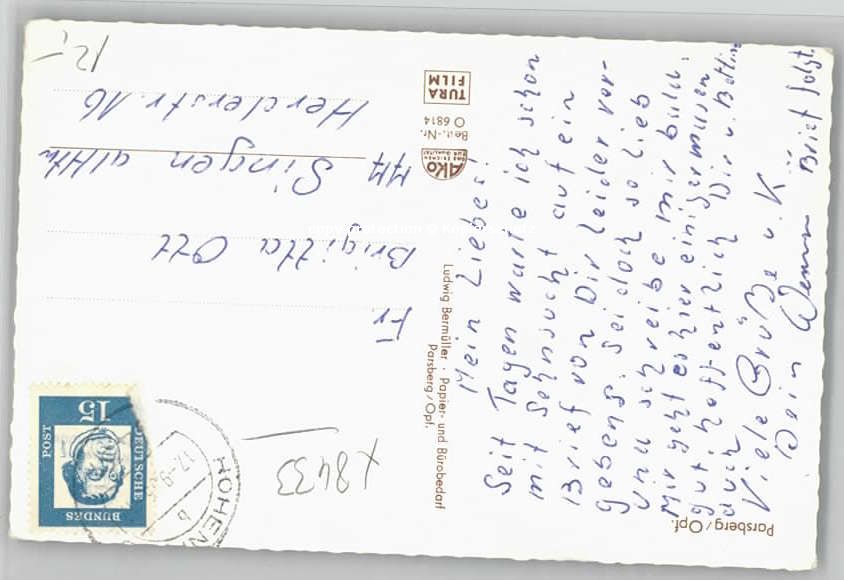 Mein Lieber!
Seit Tagen warte ich schon
mit Sehnsucht auf ein
Brief von Dir leider ver-
gebens. Sei doch so lieb
und schreibe mir bald.
Mir geht es hier einigermasen
gut, hoffentlich Dir u. Bettina
auch
Viele Grüße u. K
Dein
Brief folgt.
Parsberg/Opf.
TURA
FILM
Best.-Nr.
O 6814
AKO
DAS ZEICHEN
FÜR QUALITÄT
Ludwig Bermüller · Papier- und Bürobedarf
Parsberg/Opf.
Fr
Brigitta Ott
Singen a/Htw
Herderstr. 16
12,-
x8433
DEUTSCHE
BUNDES
POST
15
HOHENF
17.-9
b
copy protection ©